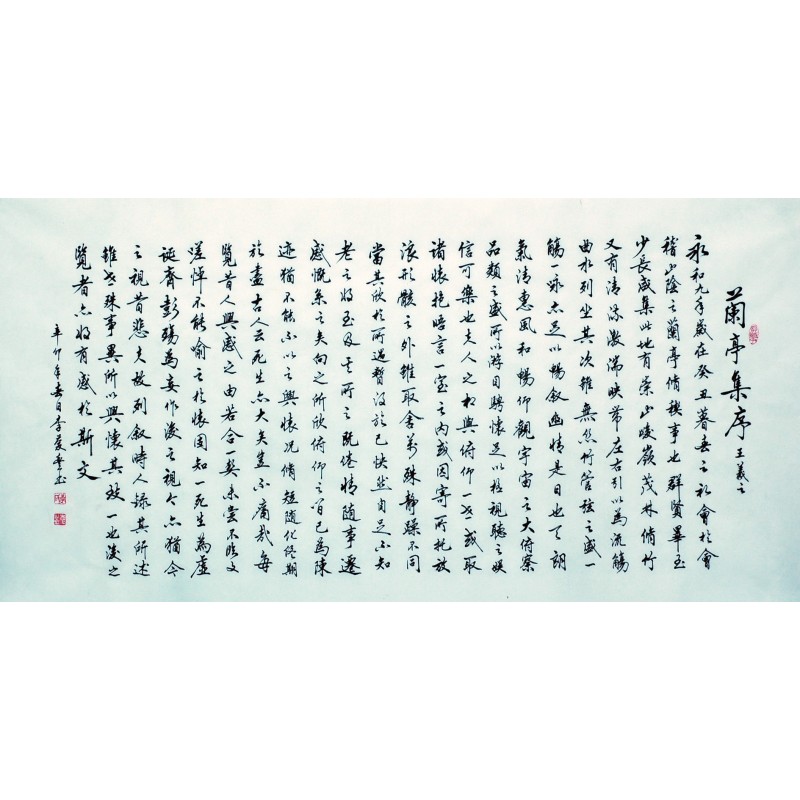 蘭亭集序 王羲之
永和九年歲在癸丑暮春之初會於會
稽山陰之蘭亭脩禊事也群賢畢至
少長咸集此地有崇山峻嶺茂林脩竹
又有清流激湍映帶左右引以為流觴
曲水列坐其次雖無絲竹管弦之盛一
觴一詠亦足以暢敘幽情是日也天朗
氣清惠風和暢仰觀宇宙之大俯察
品類之盛所以游目騁懷足以極視聽之娛
信可樂也夫人之相與俯仰一世或取
諸懷抱晤言一室之內或因寄所托放
浪形骸之外雖取舍萬殊靜躁不同
當其欣於所遇暫得於己快然自足不知
老之將至及其所之既倦情隨事遷
感慨系之矣向之所欣俯仰之間已為陳
迹猶不能不以之興懷況脩短隨化終期
於盡古人云死生亦大矣豈不痛哉每
覽昔人興感之由若合一契未嘗不臨文
嗟悼不能喻之於懷固知一死生為虛
誕齊彭殤為妄作後之視今亦猶今
之視昔悲夫故列敘時人錄其所述
雖世殊事異所以興懷其致一也後之
覽者亦將有感於斯文
辛卯年春月李愛書